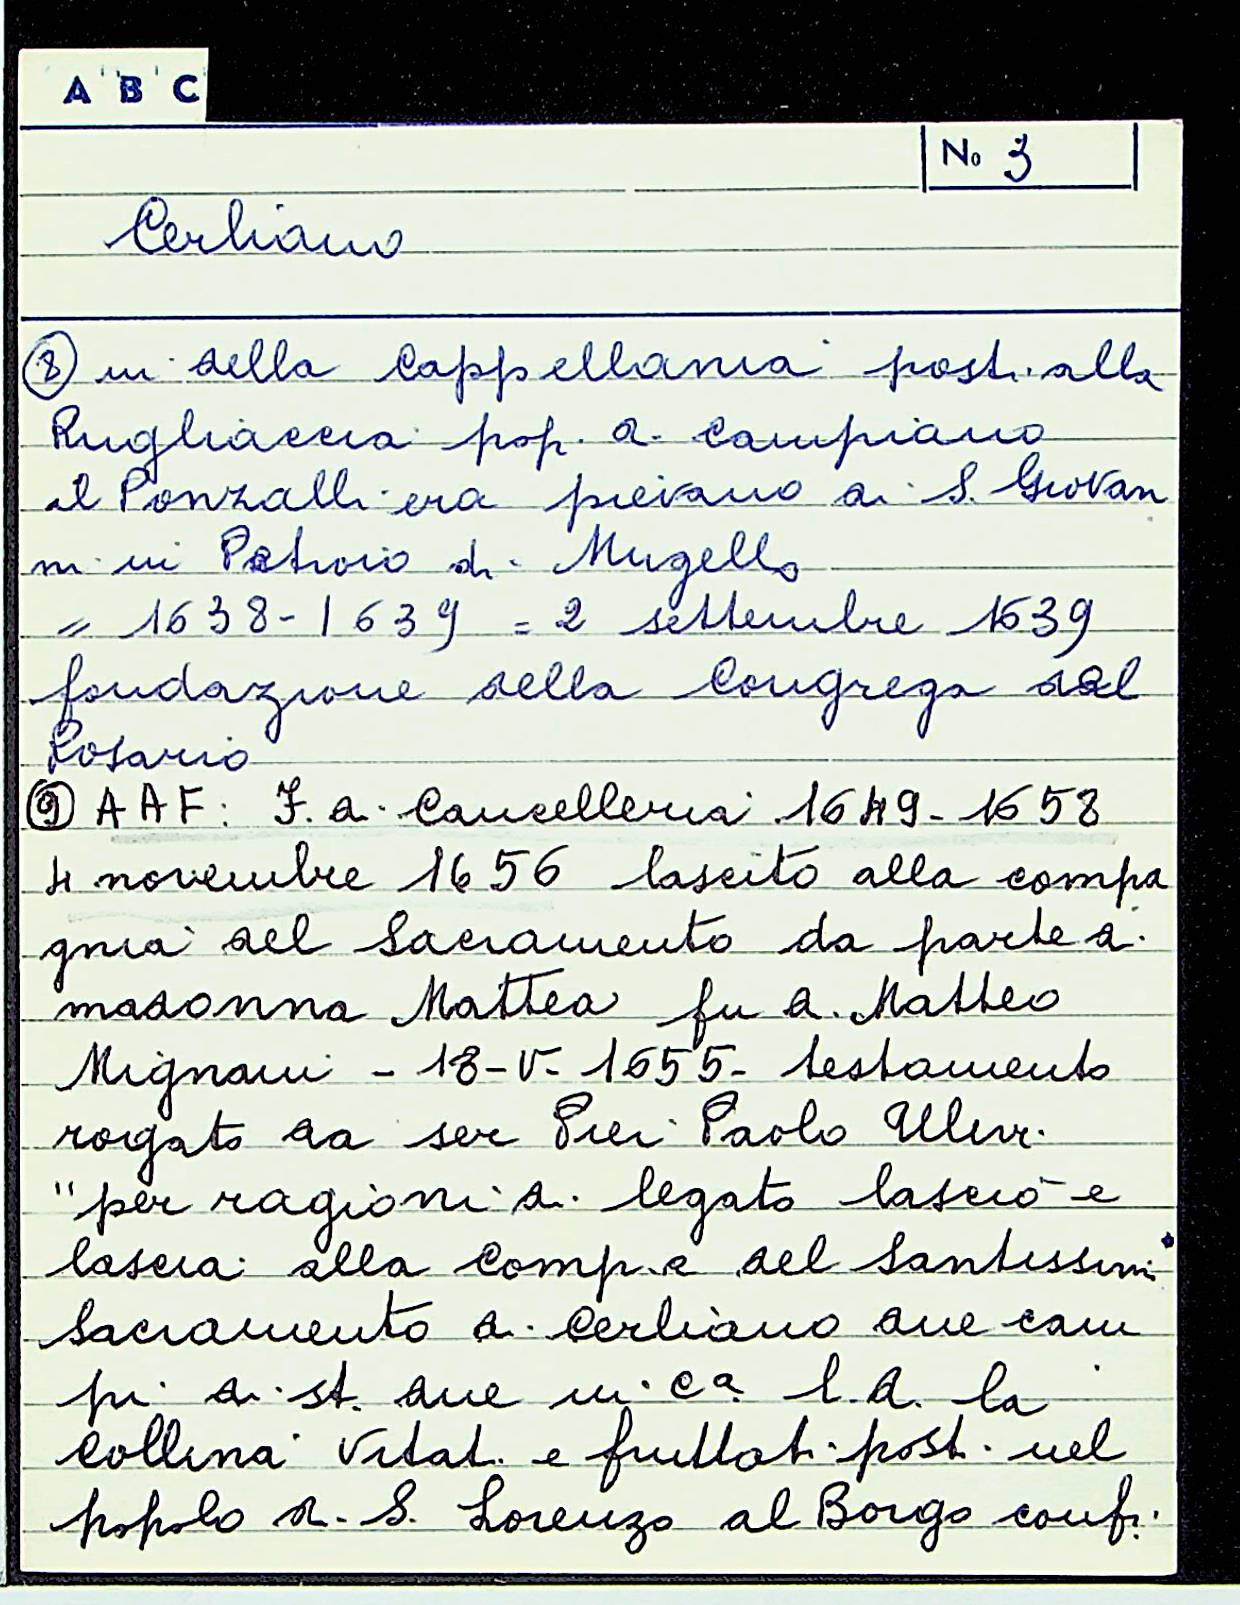 A B C
No 3
Cerliano
⑧ ni della Cappellania posti alla
Rugliaccia pop. di Campiano
il Ponzalli era pievano di S. Giovan
ni in Petroio di Mugello
= 1638-1639 = 2 settembre 1639
fondazione della Congrega del
Rosario
⑨ AAF: F. di Cancelleria 1649-1658
4 novembre 1656 lascito alla compa
gnia del Sacramento da parte di
madonna Mattea fu di Matteo
Mignani - 18-V-1655- testamento
rogato da ser Pier Paolo Ulivi
"per ragioni di legato lasciò e
lascia alla Comp.a del Santissimo
Sacramento di Cerliano due cam
pi di st. due in ca l.d. la
Collina vitati e fruttati posti nel
popolo di S. Lorenzo al Borgo conf.